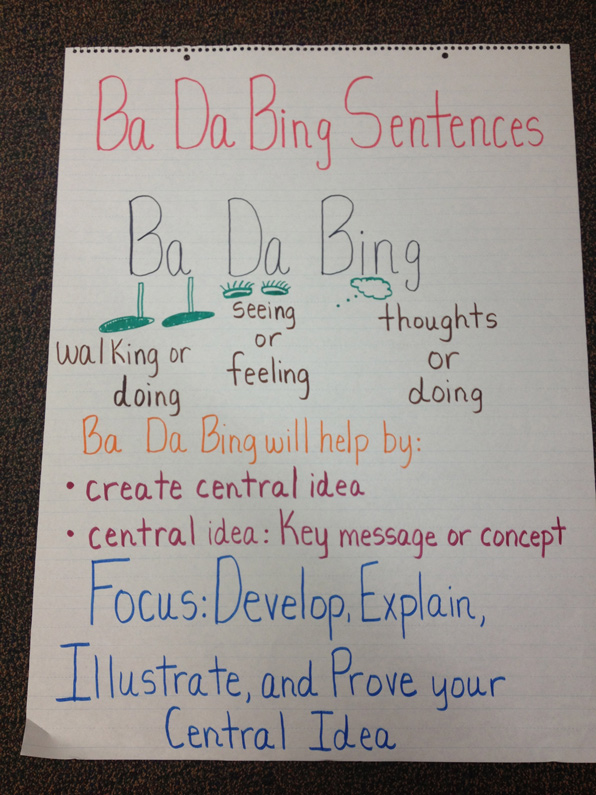 Ba Da Bing Sentences
Ba Da Bing
walking or
doing
seeing
or
feeling
thoughts
or
doing
Ba Da Bing will help by:
• create central idea
• central idea: Key message or concept
Focus: Develop, Explain,
Illustrate, and Prove your
Central Idea